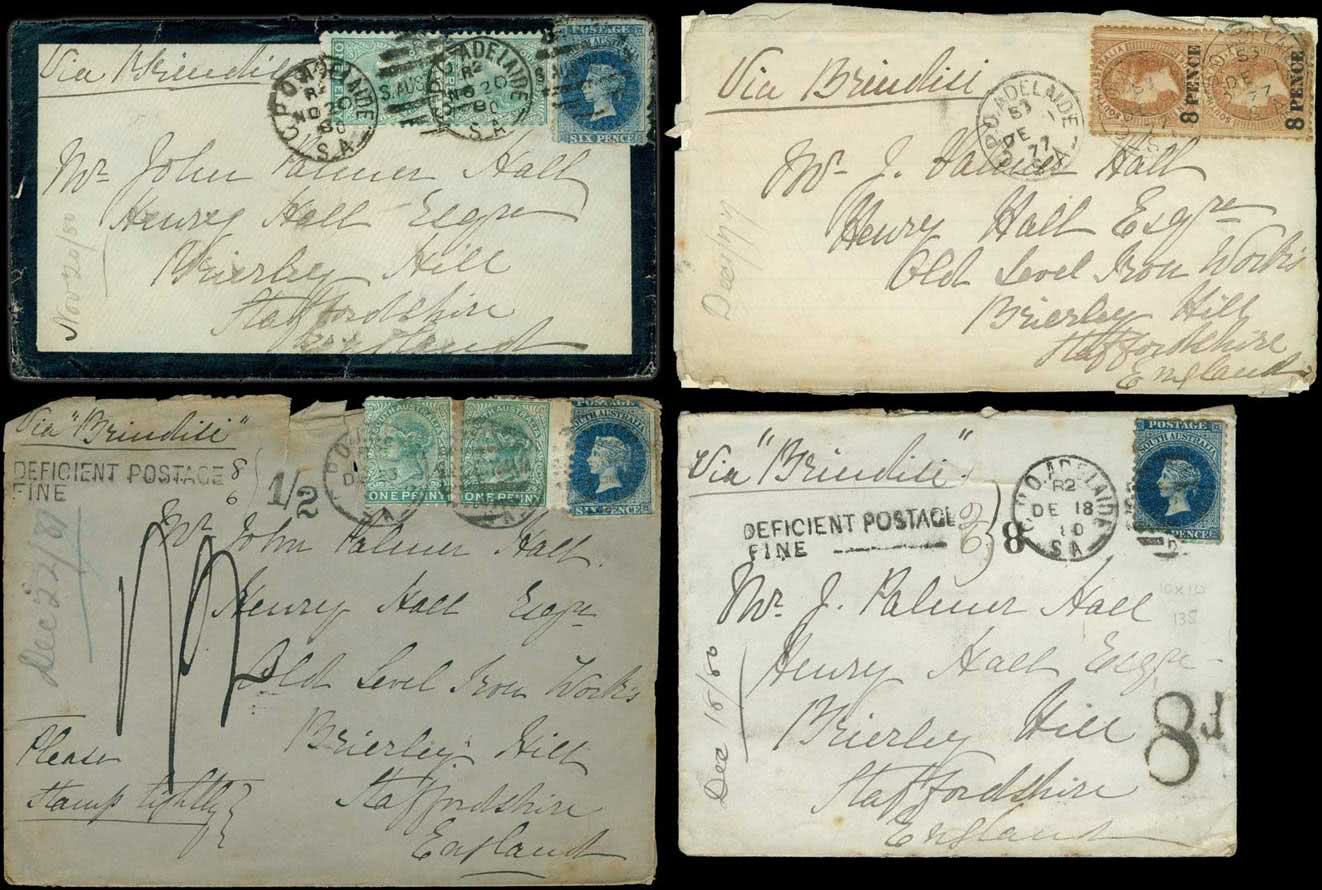 Via Brindisi
G.P.O. ADELAIDE
R2
NO 20
80
S.A
S.AUST
G.P.O. ADELAIDE
R2
NO 20
80
S.A
POSTAGE
SIX PENCE
Mr John Palmer Hall
Henry Hall Esqre
Brierley Hill
Staffordshire
England
Nov 20/80
Via Brindisi
G.P.O. ADELAIDE
53
DE 1
77
S.A
SOUTH AUSTRALIA
8 PENCE
8 PENCE
DE
77
Mr J. Palmer Hall
Henry Hall Esqre
Old Level Iron Works
Brierley Hill
Staffordshire
England
Dec 1/77
Via "Brindisi"
DEFICIENT POSTAGE 8
FINE 6
1/2
SOUTH AUSTRALIA
ONE PENNY
SOUTH AUSTRALIA
ONE PENNY
POSTAGE
SOUTH AUSTRALIA
SIX PENCE
Mr John Palmer Hall
Henry Hall Esqre
Old Level Iron Works
Brierley Hill
Staffordshire
England
Dec 22/81
Please
Stamp lightly
Via "Brindisi"
DEFICIENT POSTAGE
FINE
8
G.P.O. ADELAIDE
R2
DE 18
S.A
POSTAGE
SOUTH AUSTRALIA
PENCE
10x10
135
Mr J. Palmer Hall
Henry Hall Esqre
Brierley Hill
Staffordshire
England
8d
Dec 18/80